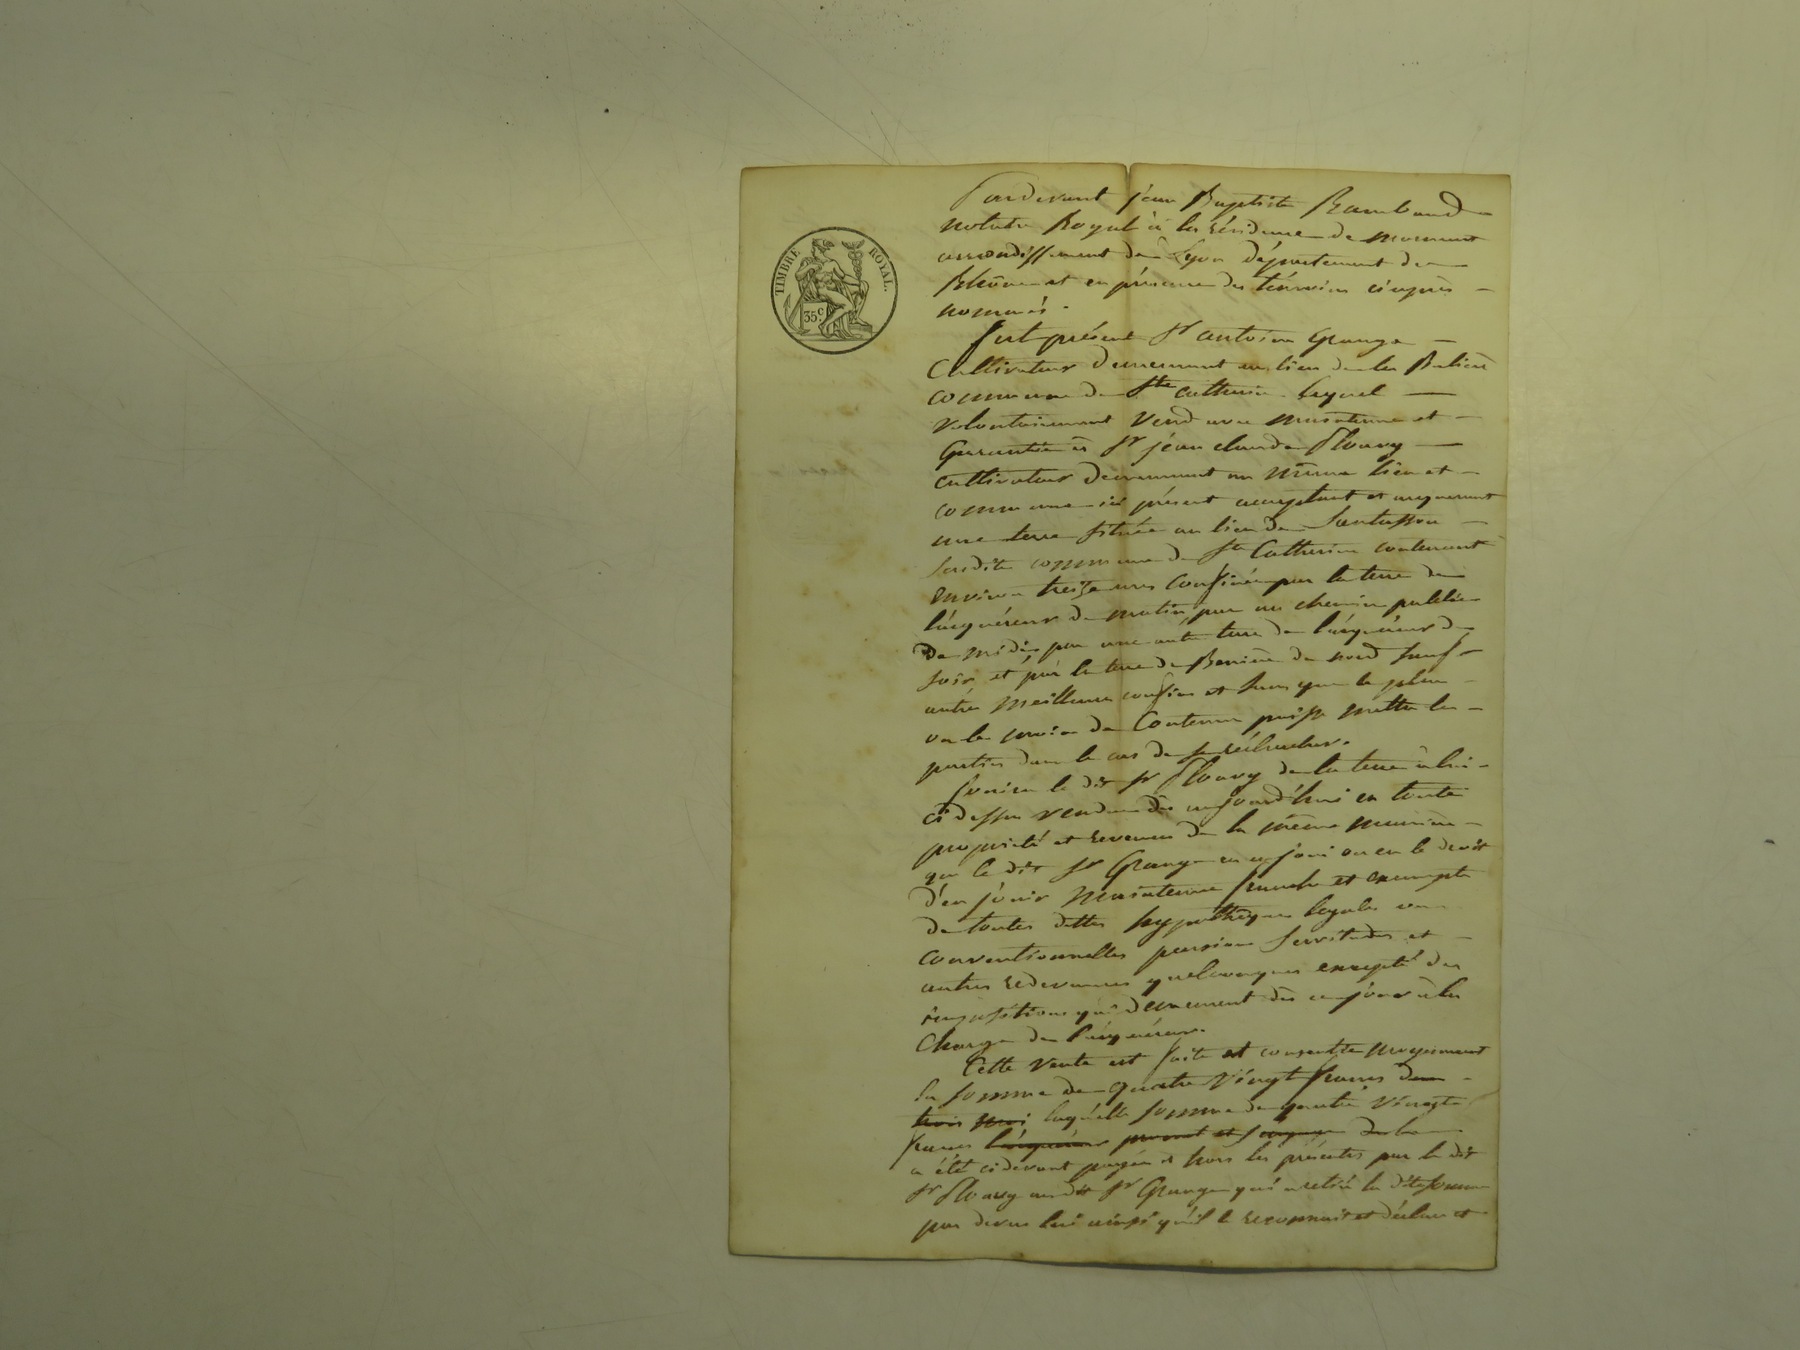 TIMBRE ROYAL.
35c.
Pardevant jean Baptiste Rambaud
notaire Royal à la résidence de mornant
arrondissement de Lyon département du
Rhône et en présence des témoins ci après
nommés.
fut présent Sr antoine Grange
Cultivateur demeurant au lieu de la
commune de Ste catherine lequel
volontairement vend avec maintenue et
Garantie à Sr jean claude Floury
cultivateur demeurant au même lieu et
commune ici présent acceptant et acquerant
une terre située au lieu de
susdite commune de Ste Catherine contenant
environ treize ares confinée par la terre de
l'acquéreur de matin par un chemin public
de midi par une autre terre de l'acquéreur de
soir et par la terre de de nord sauf
autres meilleurs confins et sans que le plus
ou le moins de Contenu puisse mettre les
parties dans le cas de se rechercher.
Jouira le dit Sr Floury de la terre à lui
ci dessus vendue dès aujourd'hui en toute
propriété et revenu de la même manière
que le dit Sr Grange en a joui ou eu le droit
d'en jouir maintenue franche et exempte
de toutes dettes hypothèques legales ou
conventionnelles pensions servitudes et
autres redevances quelconques excepté des
impositions qui demeurent dès ce jour à la
Charge de l'acquéreur.
Cette vente est faite et consentie moyennant
la somme de quatre vingt francs
laquelle somme de quatre vingts
francs l'acquéreur
a été ci devant payée et hors les présentes par le dit
Sr Floury audit Sr Grange qui a retiré la dite somme
par devers lui ainsi qu'il le reconnait et déclare et